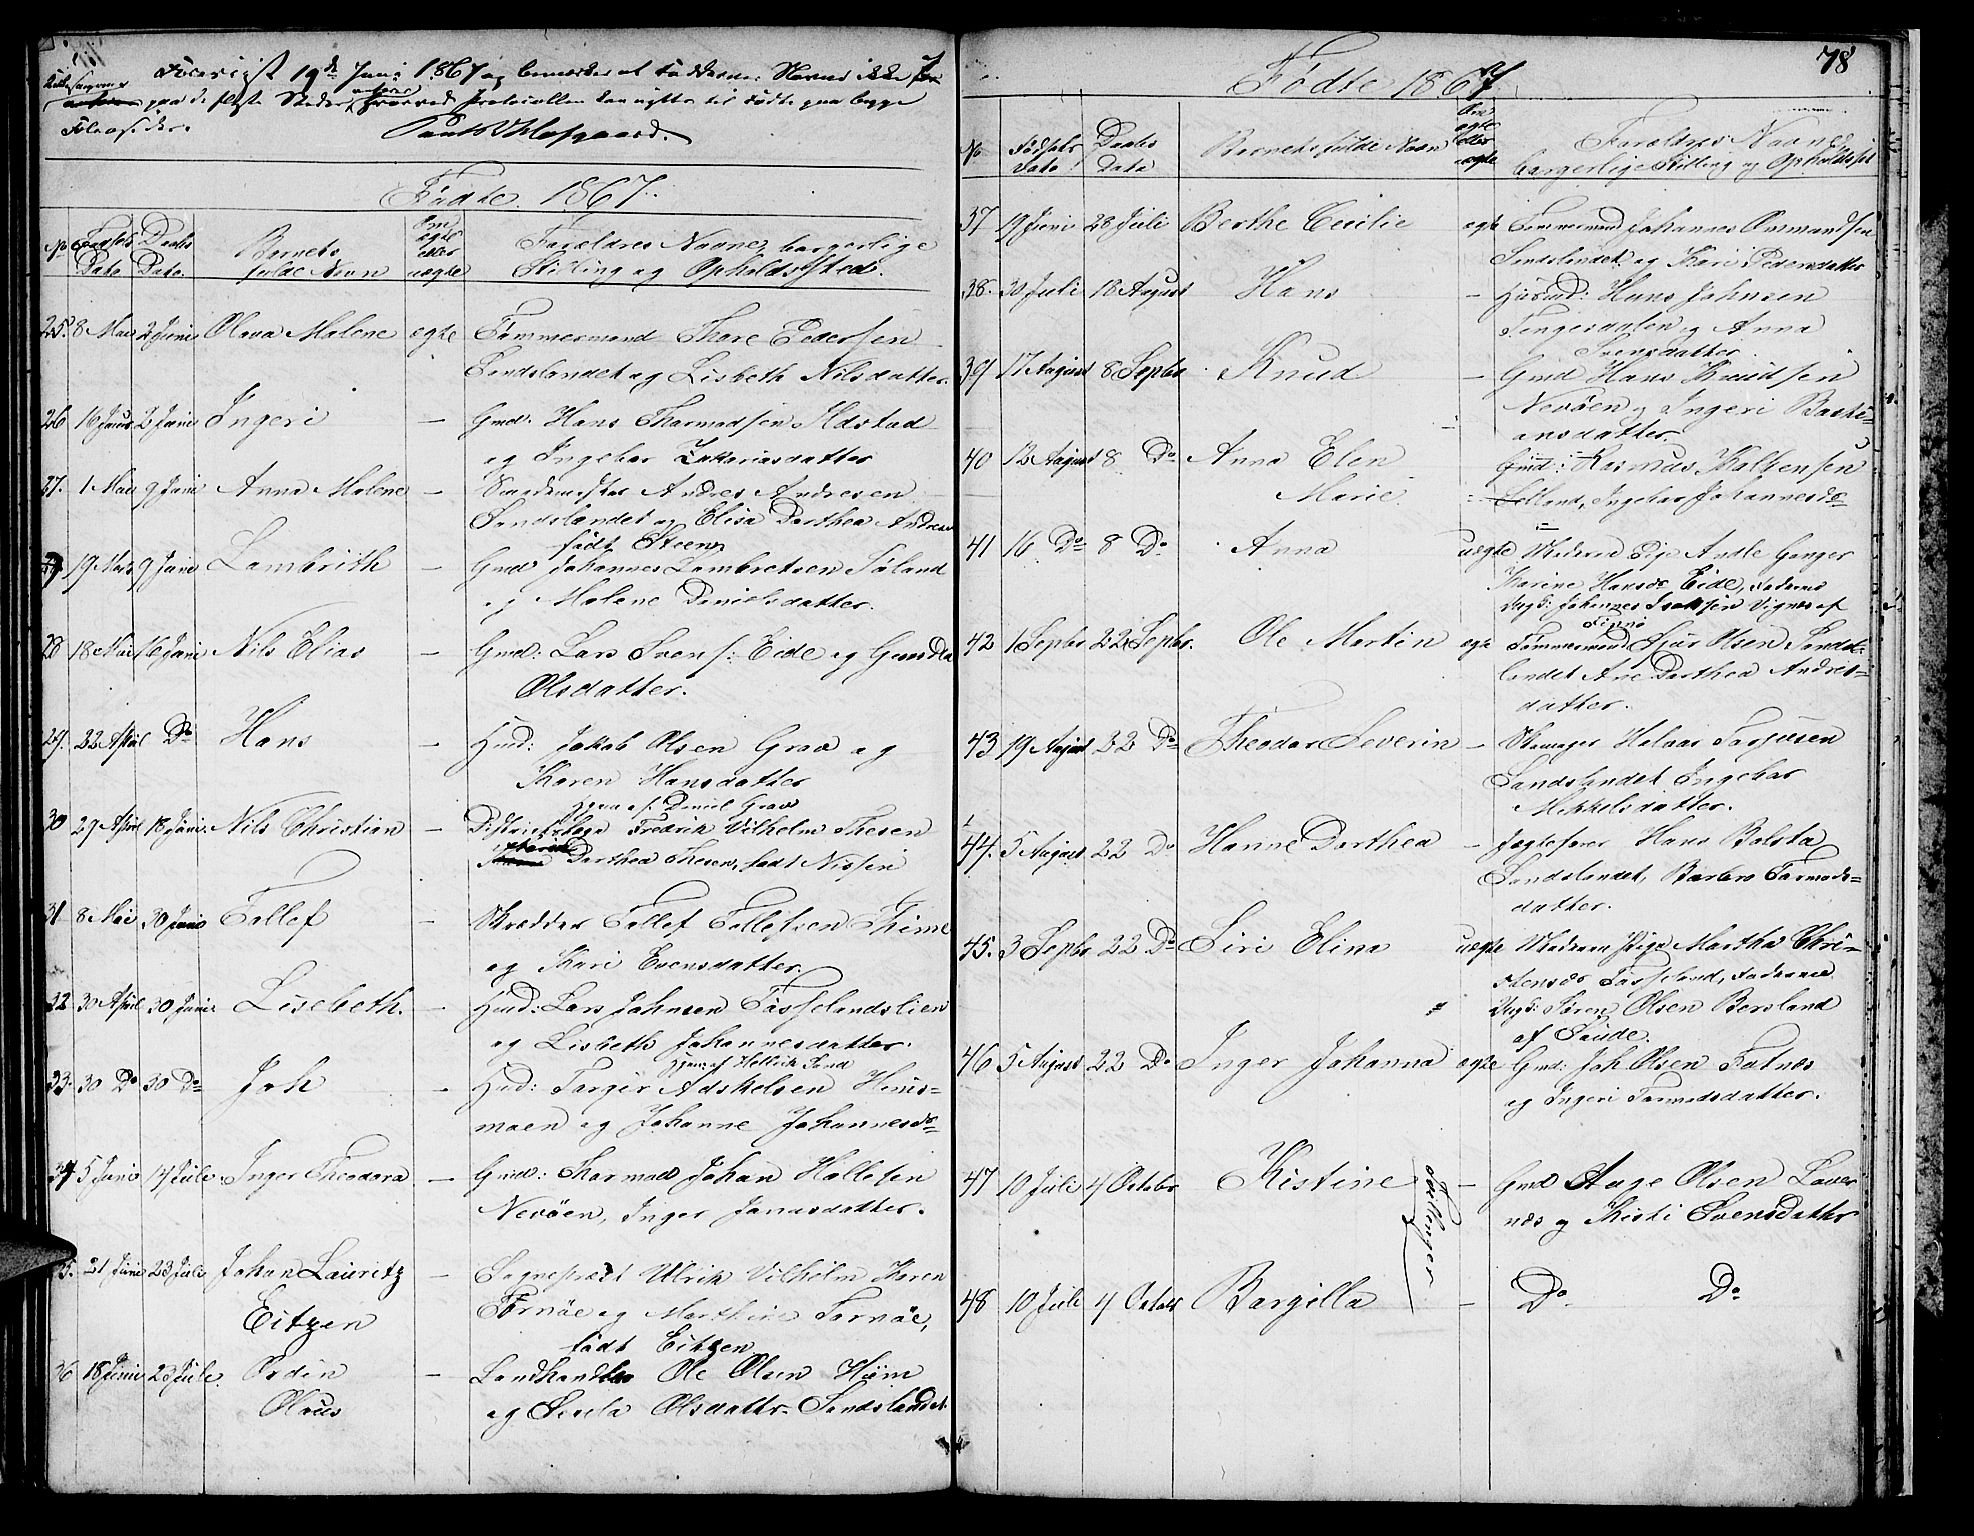 Foreviist 19de Juni 1867 og bemærkes at Faddernes Navne ikke
paa de fleste Steder, hvorved Protocollen kan nyttes til Fødte paa begge
Foliosider.
Fødte 1867.
No Fødsels Dato Daabs Dato. Barnets fulde Navn Om ægte eller uægte Forældres Navne, borgerlige Stilling og Opholdssted.
25. 8 Mai 2 Juni Olava Malene ægte Tømmermand Thore Pedersen
Sandslandet og Lisbeth Nilsdatter.
26 16 2 Juni Ingeri — Gmd. Hans Thormodsen Ilstad
og Ingebor Zakariasdatter
27. 1 Mai 9 Juni Anna Malene — Andres Andresen
Sandslandet og Elisa Dorthea Andresen
født Steen
19 Mai 9 Juni Lambrith — Gmd Johannes Lambretsen Søland
og Malene Danielsdatter.
28 18 Mai 16 Juni Nils Elias — Gmd: Lars Svens: Eide og
Olsdatter.
29. 22 April Do Hans — Hmd: Jakob Olsen Grav og
Karen Hansdatter
Hjem. af Daniel Grav
30 29 April 18 Juni Nils Christian — Distriktslæge Fredrik Vilhelm Thesen
Dorthea Thesen, født Nissen
31 8 Mai 30 Juni Tollef — Skrædder Tollef Tollefsen Thime
og Kari Evensdatter
32 30 April 30 Juni Lisebeth. — Hmd: Lars Johnsen Fosselandslien
og Lisbeth Johannesdatter.
Hjem: af Hellvik Sand
33. 30 Do 30 Do Joh — Hmd: Targer Adskelsen
moen og Johanne Johannesdr
34 5 Juni 14 Juli Inger Theodora — Gmd: Thormod Johan Hallesen
Nevøen, Inger Jonasdatter.
35. 21 Juni 23 Juli Johan Lauritz — Sognepræst Ulrik Vilhelm Koren
Eitzen Tornöe og Marthine Tornöe,
født Eitzen
36 18 Juni 23 Juli. Ordin — Landhandler Ole Olsen
Olaus og Sevla Olsdattr. Sandslandet
78
Fødte 1867.
No Fødsels Dato Daabs Dato Barnets fulde Navn Om ægte eller uægte Forældres Navne,
borgerlige Stilling og Opholdsst
37 19 Juni 28 Juli Berthe Cecilie ægte Tømmermand Johannes Ommundsen
Sandslandet og Kari Pedersdatter
38. 30 Juli 18 August Hans — Husmd: Hans Johnsen
Tengesdalen og Anna
Svensdatter.
39 17 August 8 Septbr Knud — Gmd Hans Knudsen
Nevøen og Ingeri Basti=
ansdatter.
40 12 August 8 Do Anna Elen Gmd: Rasmus Kolbensen
Marie Lolland, Ingebor Johannesdr
41 16 Do 8 Do Anna uægte Moderen Pige Andle Ganger
Karine Hansdr Eide, Faderens
Ungk: Johannes Isaksen Vignes af
Finnö
42 1 Septbr 22 Septbr. Ole Martin ægte Tømmermand Sjur Olsen Sands=
landet Ane Dorthea Andres=
datter.
43 19 August 22 Do Theodor Severin — Skomager Helaas Torjusen
Sandslandet Ingebor
Mikkelsdatter.
44. 5 August 22 Do Hanne Dorthea — Jægtefører Hans Bolsta
Sandslandet, Barbra Tormods=
datter.
45. 3 Septbr 22 Do Siri Elina uægte Moderen Pige Martha Chri=
stensdr Fosseland, Faderens
Ungk: Søren Olsen Bersland
af Saude.
46 5 August 22 Do Inger Johanna ægte Gmd: Joh Olsen Fatnes
og Ingeri Tormodsdatter.
47 10 Juli 4 October Kistine — Gmd Aage Olsen Laver
næs og Kisti Svensdatter
Tvilinger
48 10 Juli 4 October Bargilla — Do Do